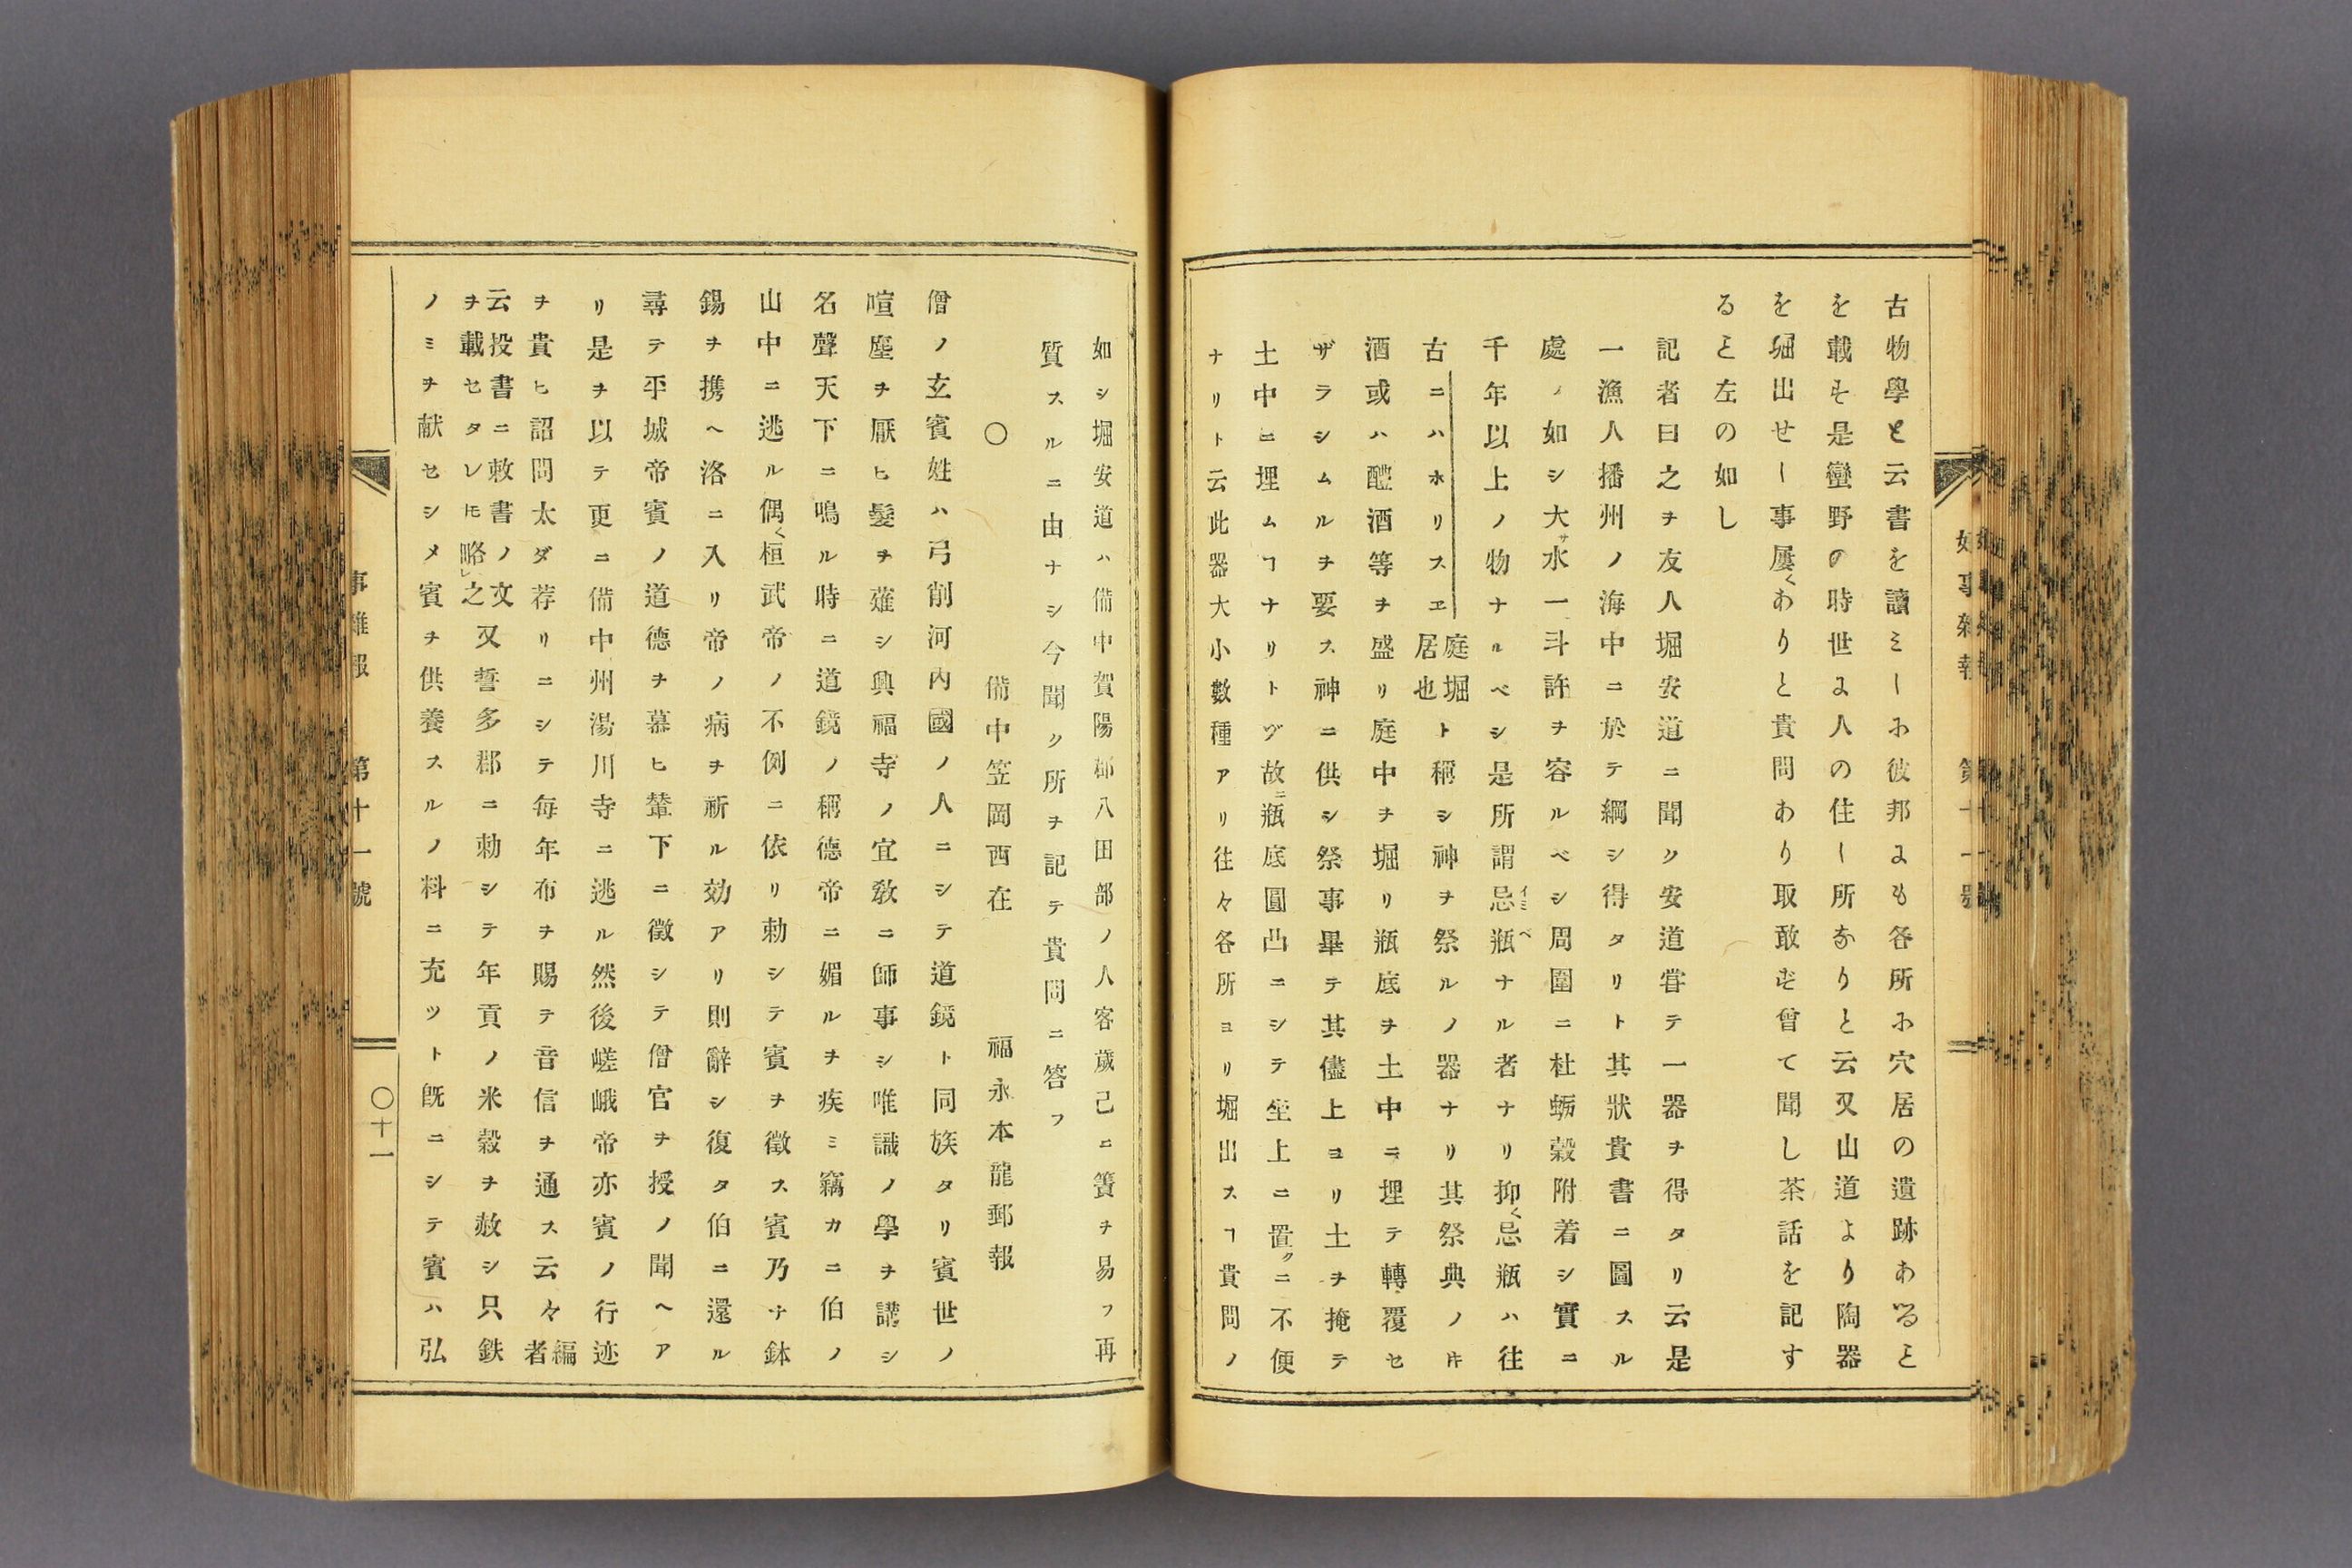 古物學と云書を讀ミしお彼邦よも各所お穴居の遺跡あると
を載そ是蠻野の時世よ人の住し所なりと云又山道より陶器
を堀出せし事屢〱ありと貴問あり取敢ず曾て聞し茶話を記す
ると左の如し
記者曰之ヲ友人堀安道ニ聞ク安道甞テ一器ヲ得タリ云是
一漁人播州ノ海中ニ於テ綱シ得タリト其狀貴書ニ圖スル
處ノ如シ大サ水一斗許ヲ容ルベシ周圍ニ牡蛎殼附着シ實ニ
千年以上ノ物ナルベシ是所謂忌瓶ナル者ナリ抑〱忌瓶ハ往
古ニハホリスヱ庭堀居也ト稱シ神ヲ祭ルノ器ナリ其祭典ノ時
酒或ハ醴酒等ヲ盛リ庭中ヲ堀リ瓶底ヲ土中ニ埋テ轉覆セ
ザラシムルヲ要ス神ニ供シ祭事畢テ其儘上ヨリ土ヲ掩テ
土中ニ埋ムヿナリトゾ故ニ瓶底圓凸ニシテ坐上ニ置クニ不便
ナリト云此器大小數種アリ往々各所ヨリ堀出スヿ貴問ノ
如シ堀安道ハ備中賀陽郡八田部ノ人客歲己ニ簀ヲ易フ再
質スルニ由ナシ今聞ク所ヲ記テ貴問ニ答フ
〇 備中笠岡西在 福永本龍郵報
僧ノ玄賓姓ハ弓削河內國ノ人ニシテ道鏡ト同族タリ賓世ノ
喧塵ヲ厭ヒ髮ヲ薙シ興福寺ノ宜敎ニ師事シ唯識ノ學ヲ講シ
名聲天下ニ鳴ル時ニ道鏡ノ稱德帝ニ媚ルヲ疾ミ竊カニ伯ノ
山中ニ逃ル偶〱桓武帝ノ不例ニ依リ勅シテ賓ヲ徵ス賓乃ナ鉢
錫ヲ携ヘ洛ニ入リ帝ノ病ヲ祈ル効アリ則辭シ復タ伯ニ還ル
尋テ平城帝賓ノ道德ヲ慕ヒ輦下ニ徵シテ僧官ヲ授ノ聞ヘア
リ是ヲ以テ更ニ備中州湯川寺ニ逃ル然後嵯峨帝亦賓ノ行迹
ヲ貴ヒ詔問太ダ荐リニシテ每年布ヲ賜テ音信ヲ通ス云々編者
云投書ニ敕書ノ文ヲ載セタレ𪜈略レ之又誓多郡ニ勅シテ年貢ノ米穀ヲ赦シ只鉄
ノミヲ献セシメ賓ヲ供養スルノ料ニ充ツト旣ニシテ賓ハ弘
事雜報 第十一號
〇十一